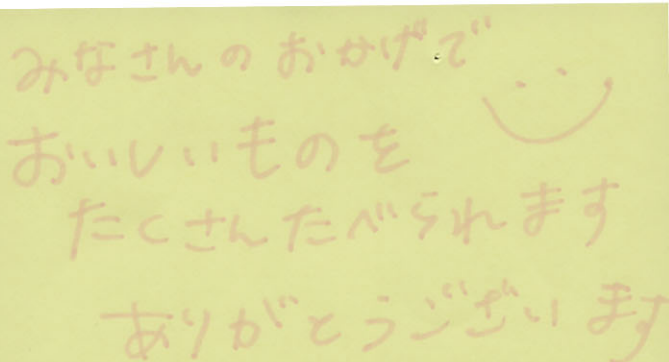 みなさんのおかげで
おいしいものを
たくさんたべられます
ありがとうございます